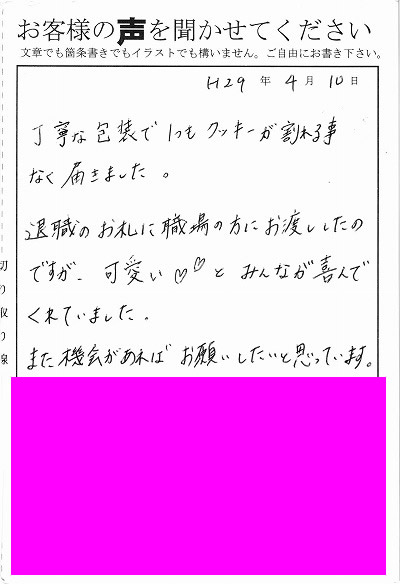 お客様の声を聞かせてください
文章でも箇条書きでもイラストでも構いません。ご自由にお書き下さい。
H29 年 4 月 10 日
丁寧な包装で1つもクッキーが割れる事
なく届きました。
退職のお札に職場の方にお渡ししたの
ですが、可愛い♡♡とみんなが喜んで
くれていました。
また機会があればお願いしたいと思っています。
切り取り線